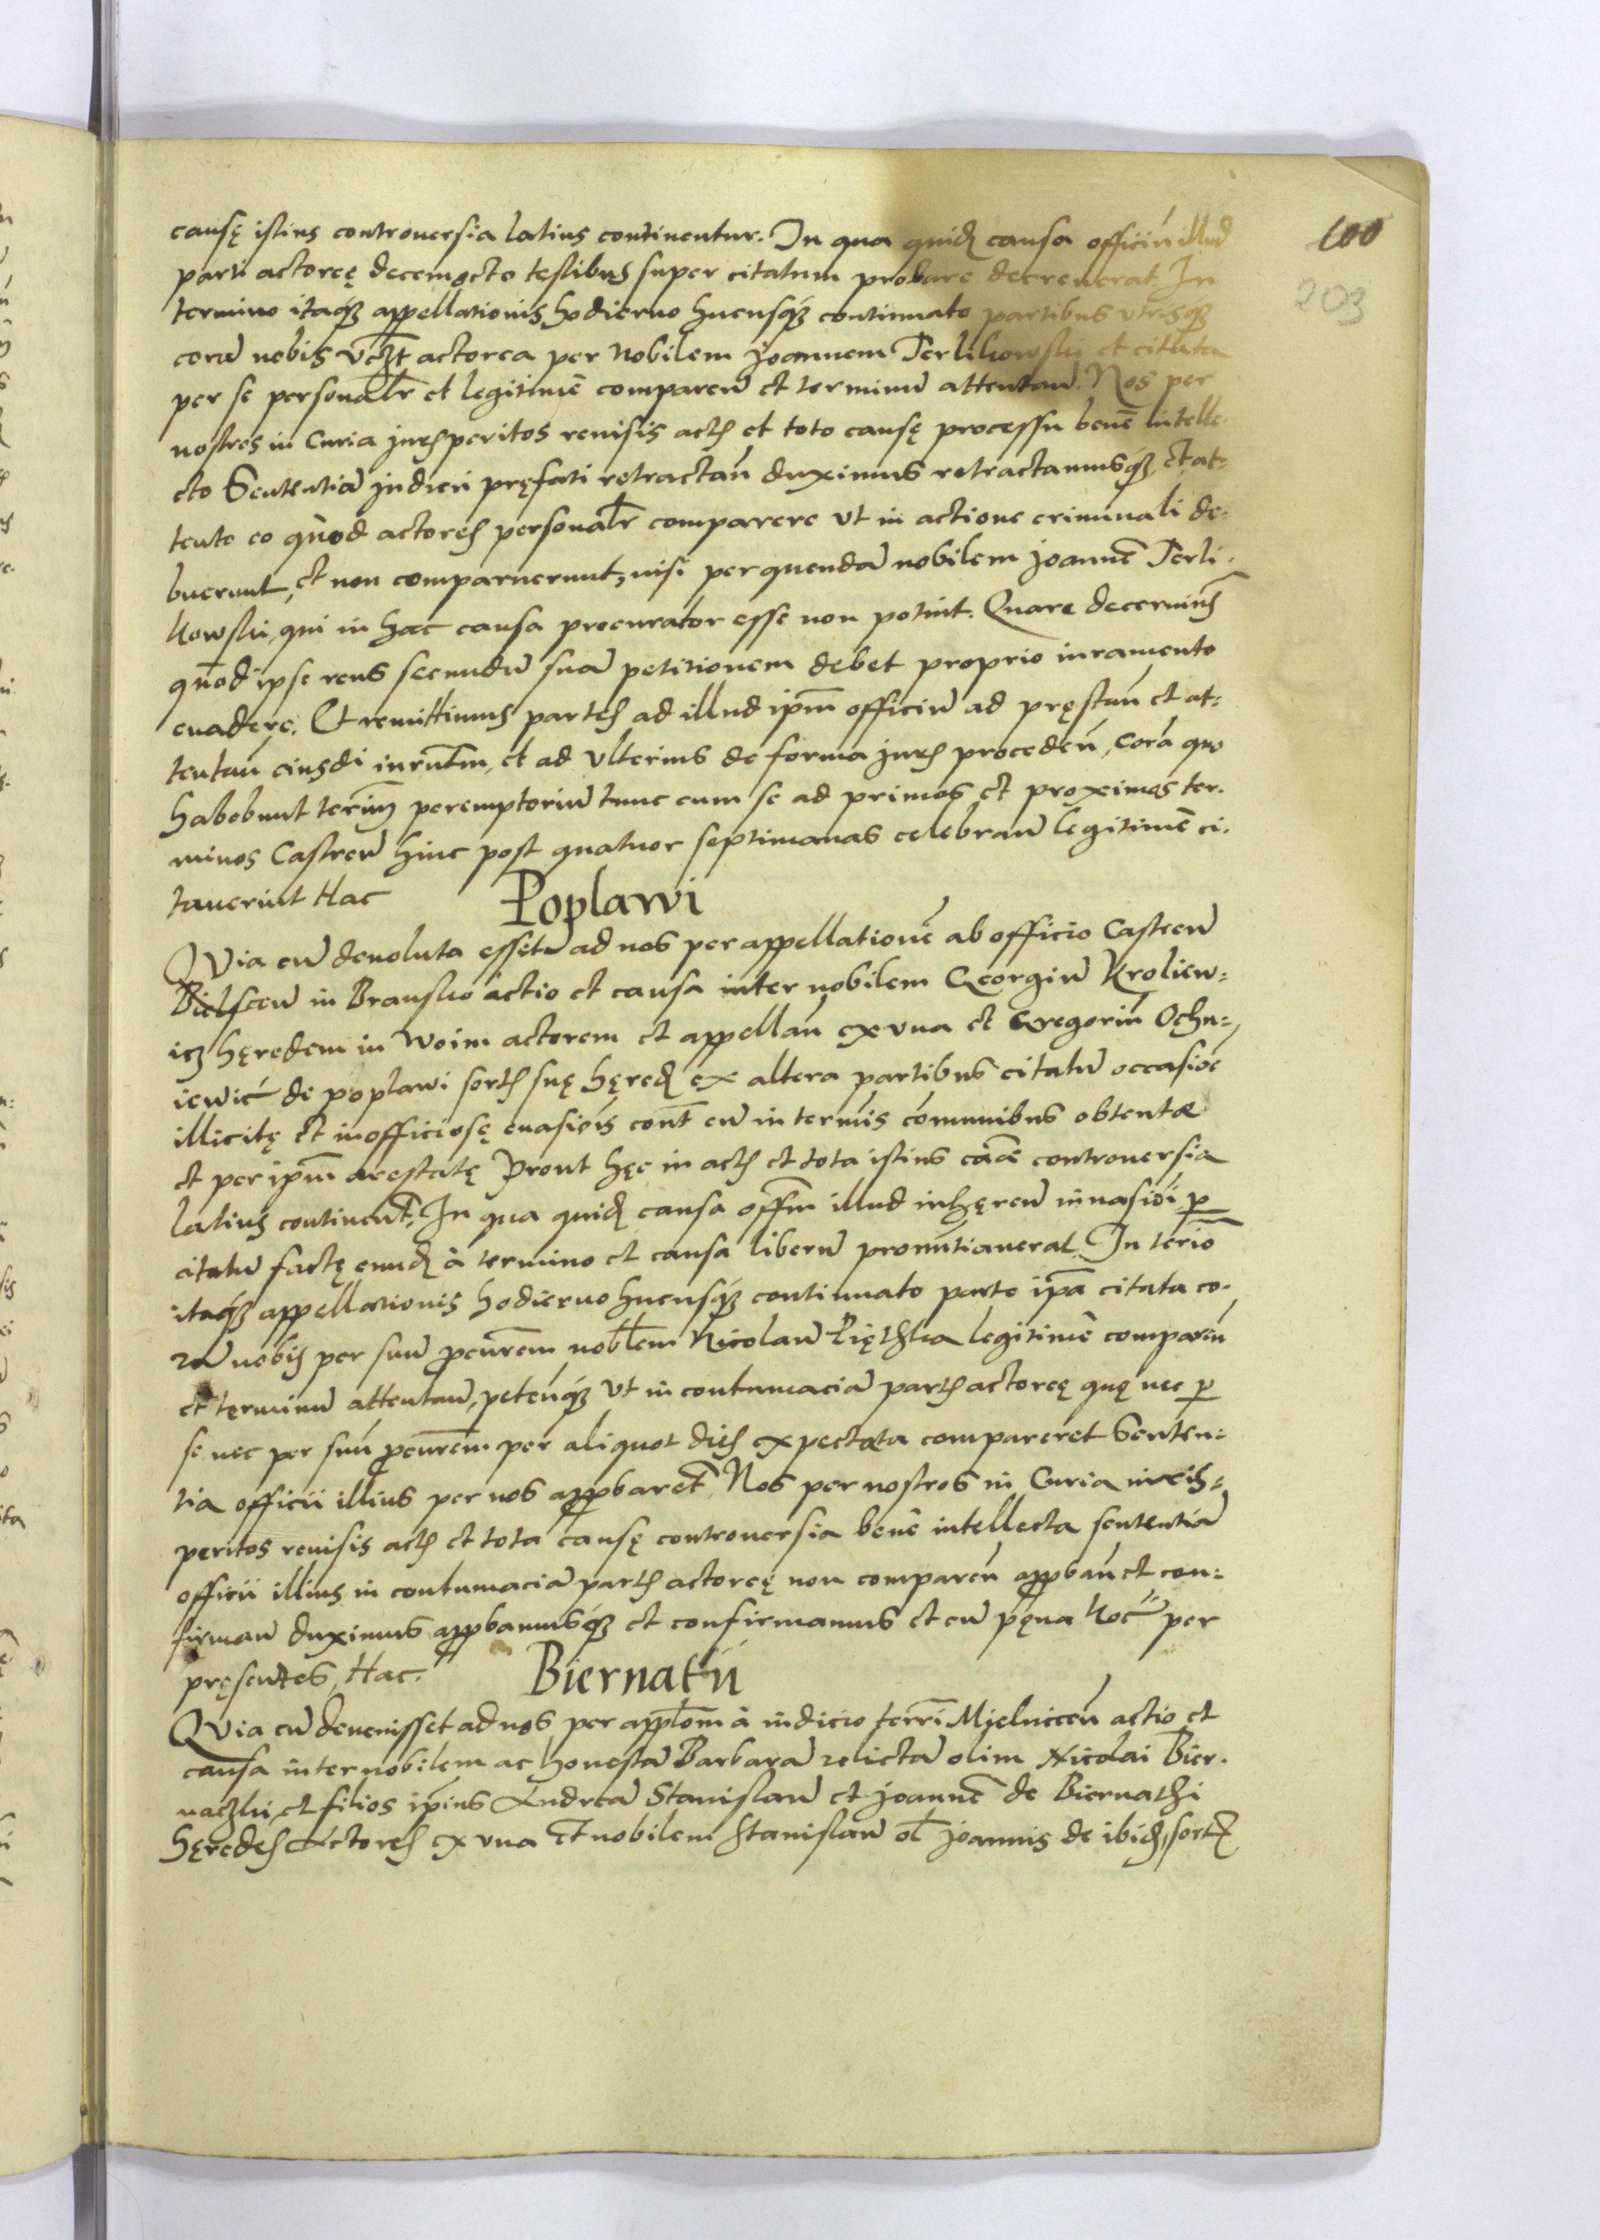 100
203
causę istius controuersia latius continentur. In qua quid causa officiū illud
parti actoreę decemocto testibus super citatum probare decreuerat In
termino itaq3 appellationis hodierno hucusq3 continuato partibus vtrisq3
corā nobis vczt actorea per Nobilem Joannem Terlikowski et citata
per se personalr et legitimē comparen̄ et terminū attentan̄. Nos per
nostros in Curia jurisperitos reuisis actis et toto causę processu benē intelle-
cto Sententiā judicii pręfati retractan̄ duximus retractamusq3, et at-
tento eo quod actores personalr comparere vt in actione criminali de-
buerunt, et non comparuerunt, nisi per quendā nobilem Joannē Terli-
kowski, qui in hac causa procurator esse non potuit. Quare decernimus
quod ipse reus secundū suā petitionem debet proprio iuramento
euadere. Et remittimus partes ad illud ipm̄ officiū ad pręstan̄ et at-
tentan̄ eiusdi iurm̄tm, et ad vlterius de forma juris proceden̄, corā quo
habebunt termin̄ peremptoriū tunc cum se ad primos et proximos ter-
minos Castren̄ hinc post quatuor septimanas celebran̄ legitimē ci-
tauerint Hac
Poplawi
QVia cū deuoluta esset ad nos per appellationē ab officio Castren̄
Bielscen̄ in Bransko actio et causa inter nobilem Georgiū Kroliew-
icz hęredem in Woim actorem et appellan̄ ex vna et Gregoriū Ochn-
iewic̄ de poplawi sortis suę hęred ex altera partibus citatū occasiōe
illicitę et inofficiosę euasiōis cont eū in termīs com̄unibus obtentæ
et per ipm̄ arestatę Prout hęc in actis et tota istius cāā controuersia
latius continent. In qua quid causa offm̄ illud inhęren̄ inuasiōi p
citatū factę eund à termino et causa liberū pronūtiauerat. In termīo
itaq3 appellationis hodierno hucusq3 continuato parte ipā citata co-
rā nobis per suū pcurēm nobllem Nicolaū Pięthka legitimē comparen̄
et terminū attentan̄, peten̄q3 vt in contumaciā partis actoreę quę nec p
se nec per suū pcurēm per aliquot dies expectata compareret Senten-
tia officii illius per nos appbaret, Nos per nostros in Curia iuris-
peritos reuisis actis et tota causę controuersia benē intellecta sententiā
officii illius in contumaciā partis actoreę non comparen̄ appban̄ et con-
firman̄ duximus appbamusq3 et confirmamus et cū pęna Koc̄ per
pręsentes, Hac.
Biernatii
QVia cū deuenisset ad nos per applōm à iudicio terrī Mielnicen̄ actio et
causa inter nobilem ac honestā Barbarā relictā olim Nicolai Bier-
naczki, et filios ipīus Andreā Stanislaū et Joannē de Biernathi
hęredes Actores ex vna Et nobilem Stanislaū ol Joannis de ibid, sort